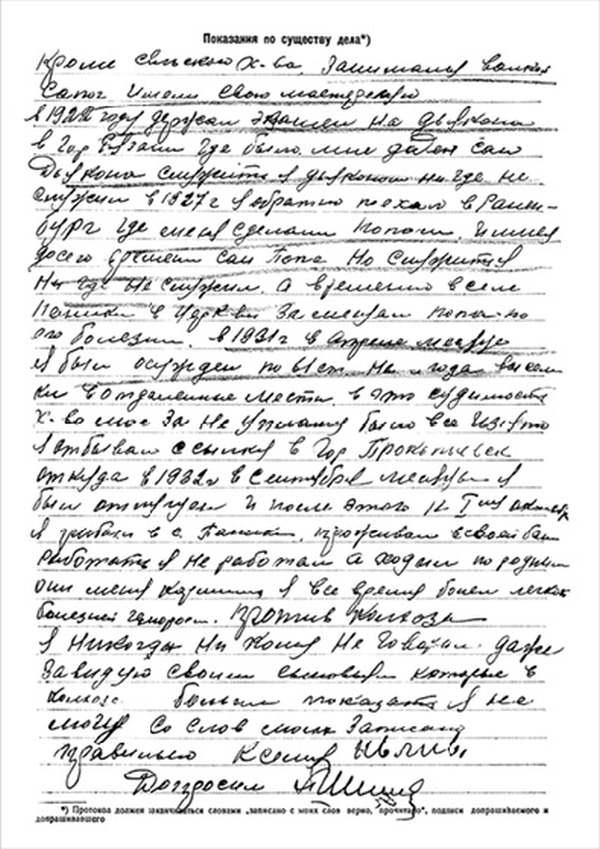 Показания по существу дела*)
Кроме сельского х-ва, занимался валкой
сапог имели свою мастерскую
в году держал экзамен на дьякона
в гор Рязани где было мне дан сан
дьякона служить я дьяконом ни где не
служил в 1927 г я обратно поехал в Ранен-
бург где меня сделали попом. И имея
до сего времени сан попа но служить я
ни где не служил. А временно в селе
в церкви замещал попа по
его болезни. в 1931 г в апреле месяце
я был осужден по 61 ст. на года высыл-
ки в отдаленные места. в эту судимость
х-во мое за не уплату было все изъято
я отбывал ссылку в гор Прокопьевск
откуда в 1932 г в сентябре месяце я
был отпущен и после этого
я прибыл в с. проживал в своей бане
работать я не работал а ходил по родным
они меня кормили я все время болел легких
болезней геморой. против колхоза
я никогда ни кому не говорил. даже
завидую своим сыновьям которые в
колхозе больше показать я не
могу со слов моих записано
правильно к сему
Допросил
*) Протокол должен заканчиваться словами „записано с моих слов верно, прочитано“, подписи допрашиваемого и
допрашивавшего